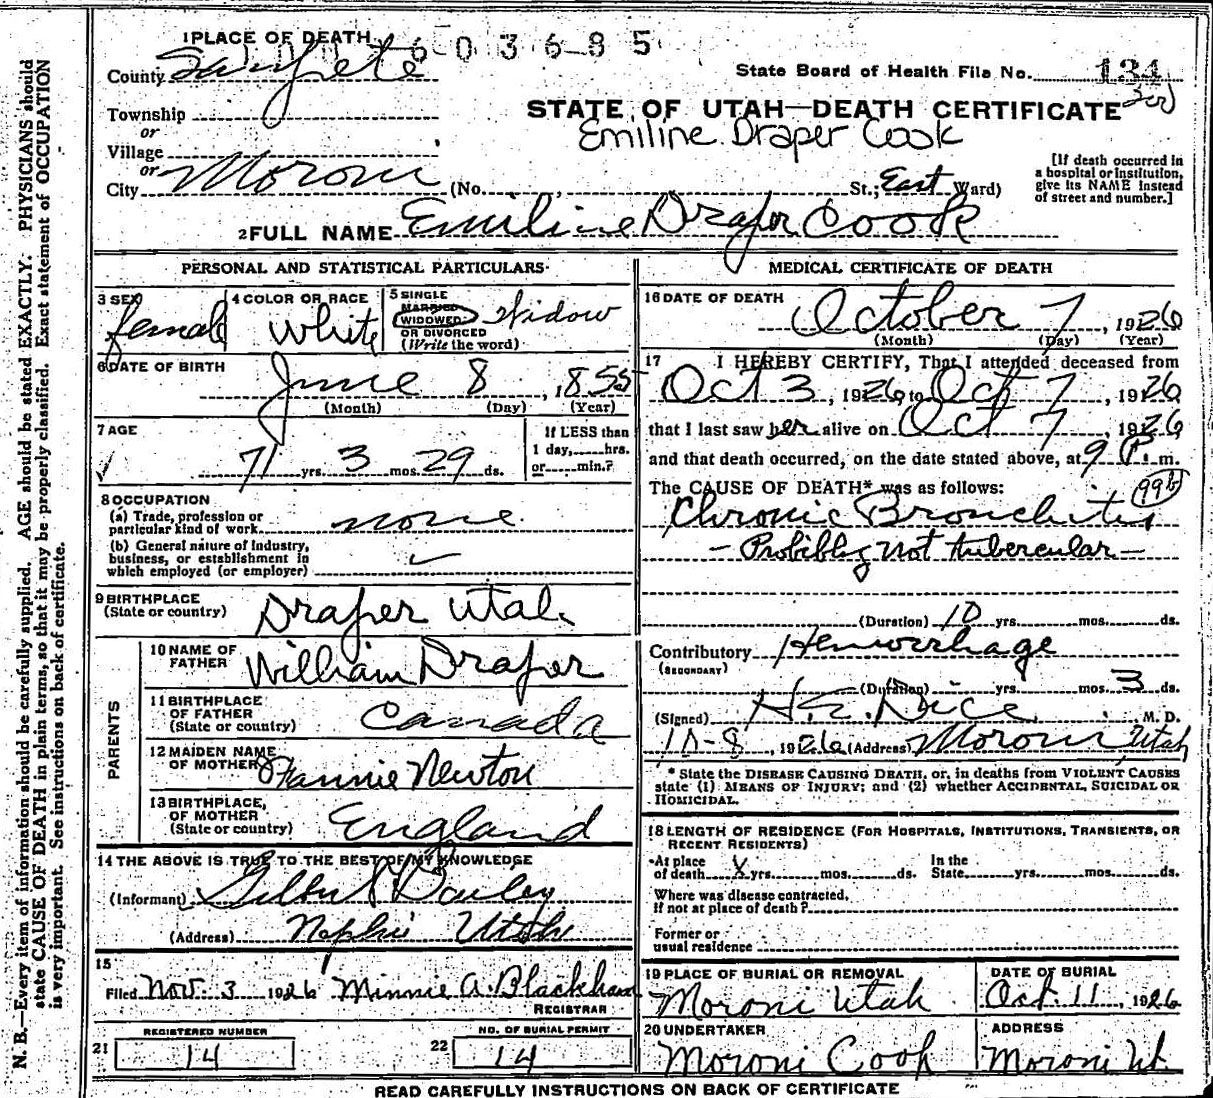 N. B.—Every item of information should be carefully supplied. AGE should be stated EXACTLY. PHYSICIANS should
state CAUSE OF DEATH in plain terms, so that it may be properly classified. Exact statement of OCCUPATION
is very important. See instructions on back of certificate.
1 PLACE OF DEATH
6 0 3 6 8 5
County Sanpete
State Board of Health File No. 134
Township
or
Village
or
City Moroni
STATE OF UTAH—DEATH CERTIFICATE
Emiline Draper Cook
(No. , St.; East Ward)
[If death occurred in
a hospital or institution,
give its NAME instead
of street and number.]
2 FULL NAME Emiline Draper Cook
PERSONAL AND STATISTICAL PARTICULARS
3 SEX female
4 COLOR OR RACE White
5 SINGLE
MARRIED
WIDOWED
OR DIVORCED
(Write the word)
Widow
6 DATE OF BIRTH
June 8, 1855
(Month) (Day) (Year)
7 AGE
71 yrs. 3 mos. 29 ds.
If LESS than
1 day, hrs.
or min.?
8 OCCUPATION
(a) Trade, profession or
particular kind of work none
(b) General nature of Industry,
business, or establishment in
which employed (or employer)
9 BIRTHPLACE
(State or country) Draper Utah
PARENTS
10 NAME OF
FATHER William Draper
11 BIRTHPLACE
OF FATHER
(State or country) Canada
12 MAIDEN NAME
OF MOTHER Fannie Newton
13 BIRTHPLACE,
OF MOTHER
(State or country) England
14 THE ABOVE IS TRUE TO THE BEST OF MY KNOWLEDGE
(Informant) Bailey
(Address) Nephi Utah
15
Filed Nov. 3 1926 Minnie A. Blackham
REGISTRAR
REGISTERED NUMBER
21 14
NO. OF BURIAL PERMIT
22 14
MEDICAL CERTIFICATE OF DEATH
16 DATE OF DEATH
October 7, 1926
(Month) (Day) (Year)
17 I HEREBY CERTIFY, That I attended deceased from
Oct 3, 1926, to Oct 7, 1926
that I last saw her alive on Oct 7, 1926
and that death occurred, on the date stated above, at 9 P. m.
The CAUSE OF DEATH* was as follows:
99b
Chronic Bronchitis
- Probibly not tubercular -
(Duration) 10 yrs. mos. ds.
Contributory Hemorrhage
(SECONDARY)
(Duration) yrs. mos. 3 ds.
(Signed) H. E. Dice, M. D.
10-8, 1926 (Address) Moroni Utah
* State the DISEASE CAUSING DEATH, or, in deaths from VIOLENT CAUSES
state (1) MEANS OF INJURY; and (2) whether ACCIDENTAL, SUICIDAL OR
HOMICIDAL.
18 LENGTH OF RESIDENCE (FOR HOSPITALS, INSTITUTIONS, TRANSIENTS, OR
RECENT RESIDENTS)
At place
of death X yrs. mos. ds.
In the
State yrs. mos. ds.
Where was disease contracted,
if not at place of death?
Former or
usual residence
19 PLACE OF BURIAL OR REMOVAL
Moroni Utah
DATE OF BURIAL
Oct. 11, 1926
20 UNDERTAKER
Moroni Cook
ADDRESS
Moroni Ut.
READ CAREFULLY INSTRUCTIONS ON BACK OF CERTIFICATE